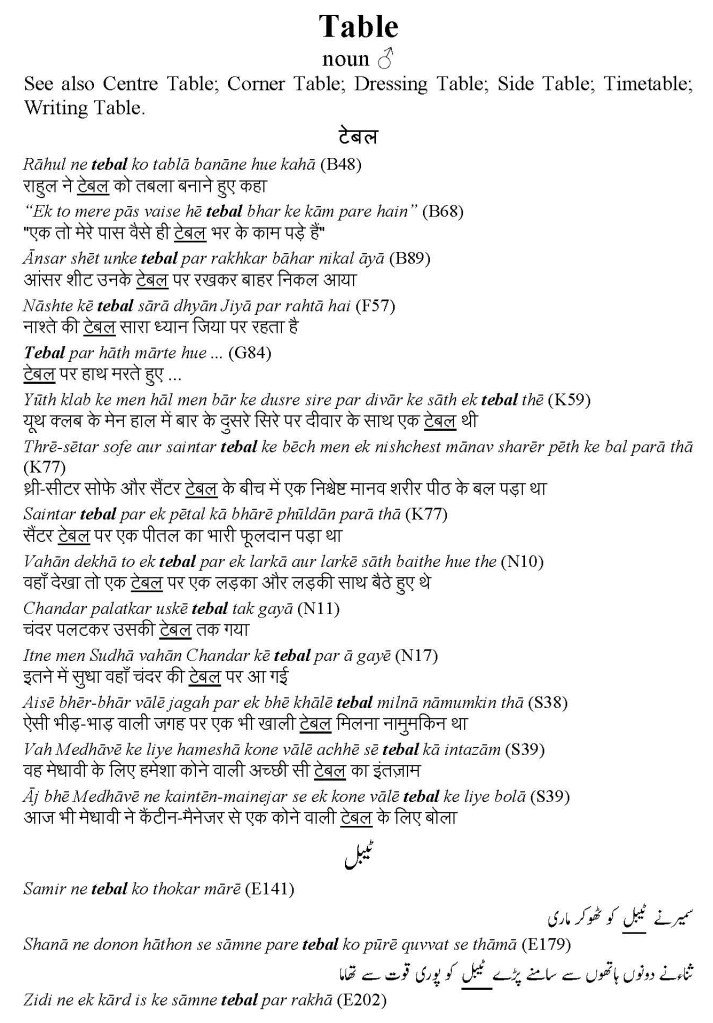 Table
noun ♂
See also Centre Table; Corner Table; Dressing Table; Side Table; Timetable;
Writing Table.
टेबल
Rāhul ne tebal ko tablā banāne hue kahā (B48)
राहुल ने टेबल को तबला बनाने हुए कहा
“Ek to mere pās vaise hē tebal bhar ke kām pare hain” (B68)
"एक तो मेरे पास वैसे ही टेबल भर के काम पड़े हैं"
Ānsar shēt unke tebal par rakhkar bāhar nikal āyā (B89)
आंसर शीट उनके टेबल पर रखकर बाहर निकल आया
Nāshte kē tebal sārā dhyān Jiyā par rahtā hai (F57)
नाश्ते की टेबल सारा ध्यान जिया पर रहता है
Tebal par hāth mārte hue ... (G84)
टेबल पर हाथ मरते हुए ...
Yūth klab ke men hāl men bār ke dusre sire par divār ke sāth ek tebal thē (K59)
यूथ क्लब के मेन हाल में बार के दुसरे सिरे पर दीवार के साथ एक टेबल थी
Thrē-sētar sofe aur saintar tebal ke bēch men ek nishchest mānav sharēr pēth ke bal parā thā
(K77)
थ्री-सीटर सोफे और सैंटर टेबल के बीच में एक निश्चेष्ट मानव शरीर पीठ के बल पड़ा था
Saintar tebal par ek pētal kā bhārē phūldān parā thā (K77)
सैंटर टेबल पर एक पीतल का भारी फूलदान पड़ा था
Vahān dekhā to ek tebal par ek larkā aur larkē sāth baithe hue the (N10)
वहाँ देखा तो एक टेबल पर एक लड़का और लड़की साथ बैठे हुए थे
Chandar palatkar uskē tebal tak gayā (N11)
चंदर पलटकर उसकी टेबल तक गया
Itne men Sudhā vahān Chandar kē tebal par ā gayē (N17)
इतने में सुधा वहाँ चंदर की टेबल पर आ गई
Aisē bhēr-bhār vālē jagah par ek bhē khālē tebal milnā nāmumkin thā (S38)
ऐसी भीड़-भाड़ वाली जगह पर एक भी खाली टेबल मिलना नामुमकिन था
Vah Medhāvē ke liye hameshā kone vālē achhē sē tebal kā intazām (S39)
वह मेधावी के लिए हमेशा कोने वाली अच्छी सी टेबल का इंतज़ाम
Āj bhē Medhāvē ne kaintēn-mainejar se ek kone vālē tebal ke liye bolā (S39)
आज भी मेधावी ने कैंटीन-मैनेजर से एक कोने वाली टेबल के लिए बोला
ٹیبل
Samir ne tebal ko thokar mārē (E141)
سمیر نے ٹیبل کو ٹھوکر ماری
Shanā ne donon hāthon se sāmne pare tebal ko pūrē quvvat se thāmā (E179)
ثناء نے دونوں ہاتھوں سے سامنے پڑے ٹیبل کو پوری قوت سے تھاما
Zidi ne ek kārd is ke sāmne tebal par rakhā (E202)